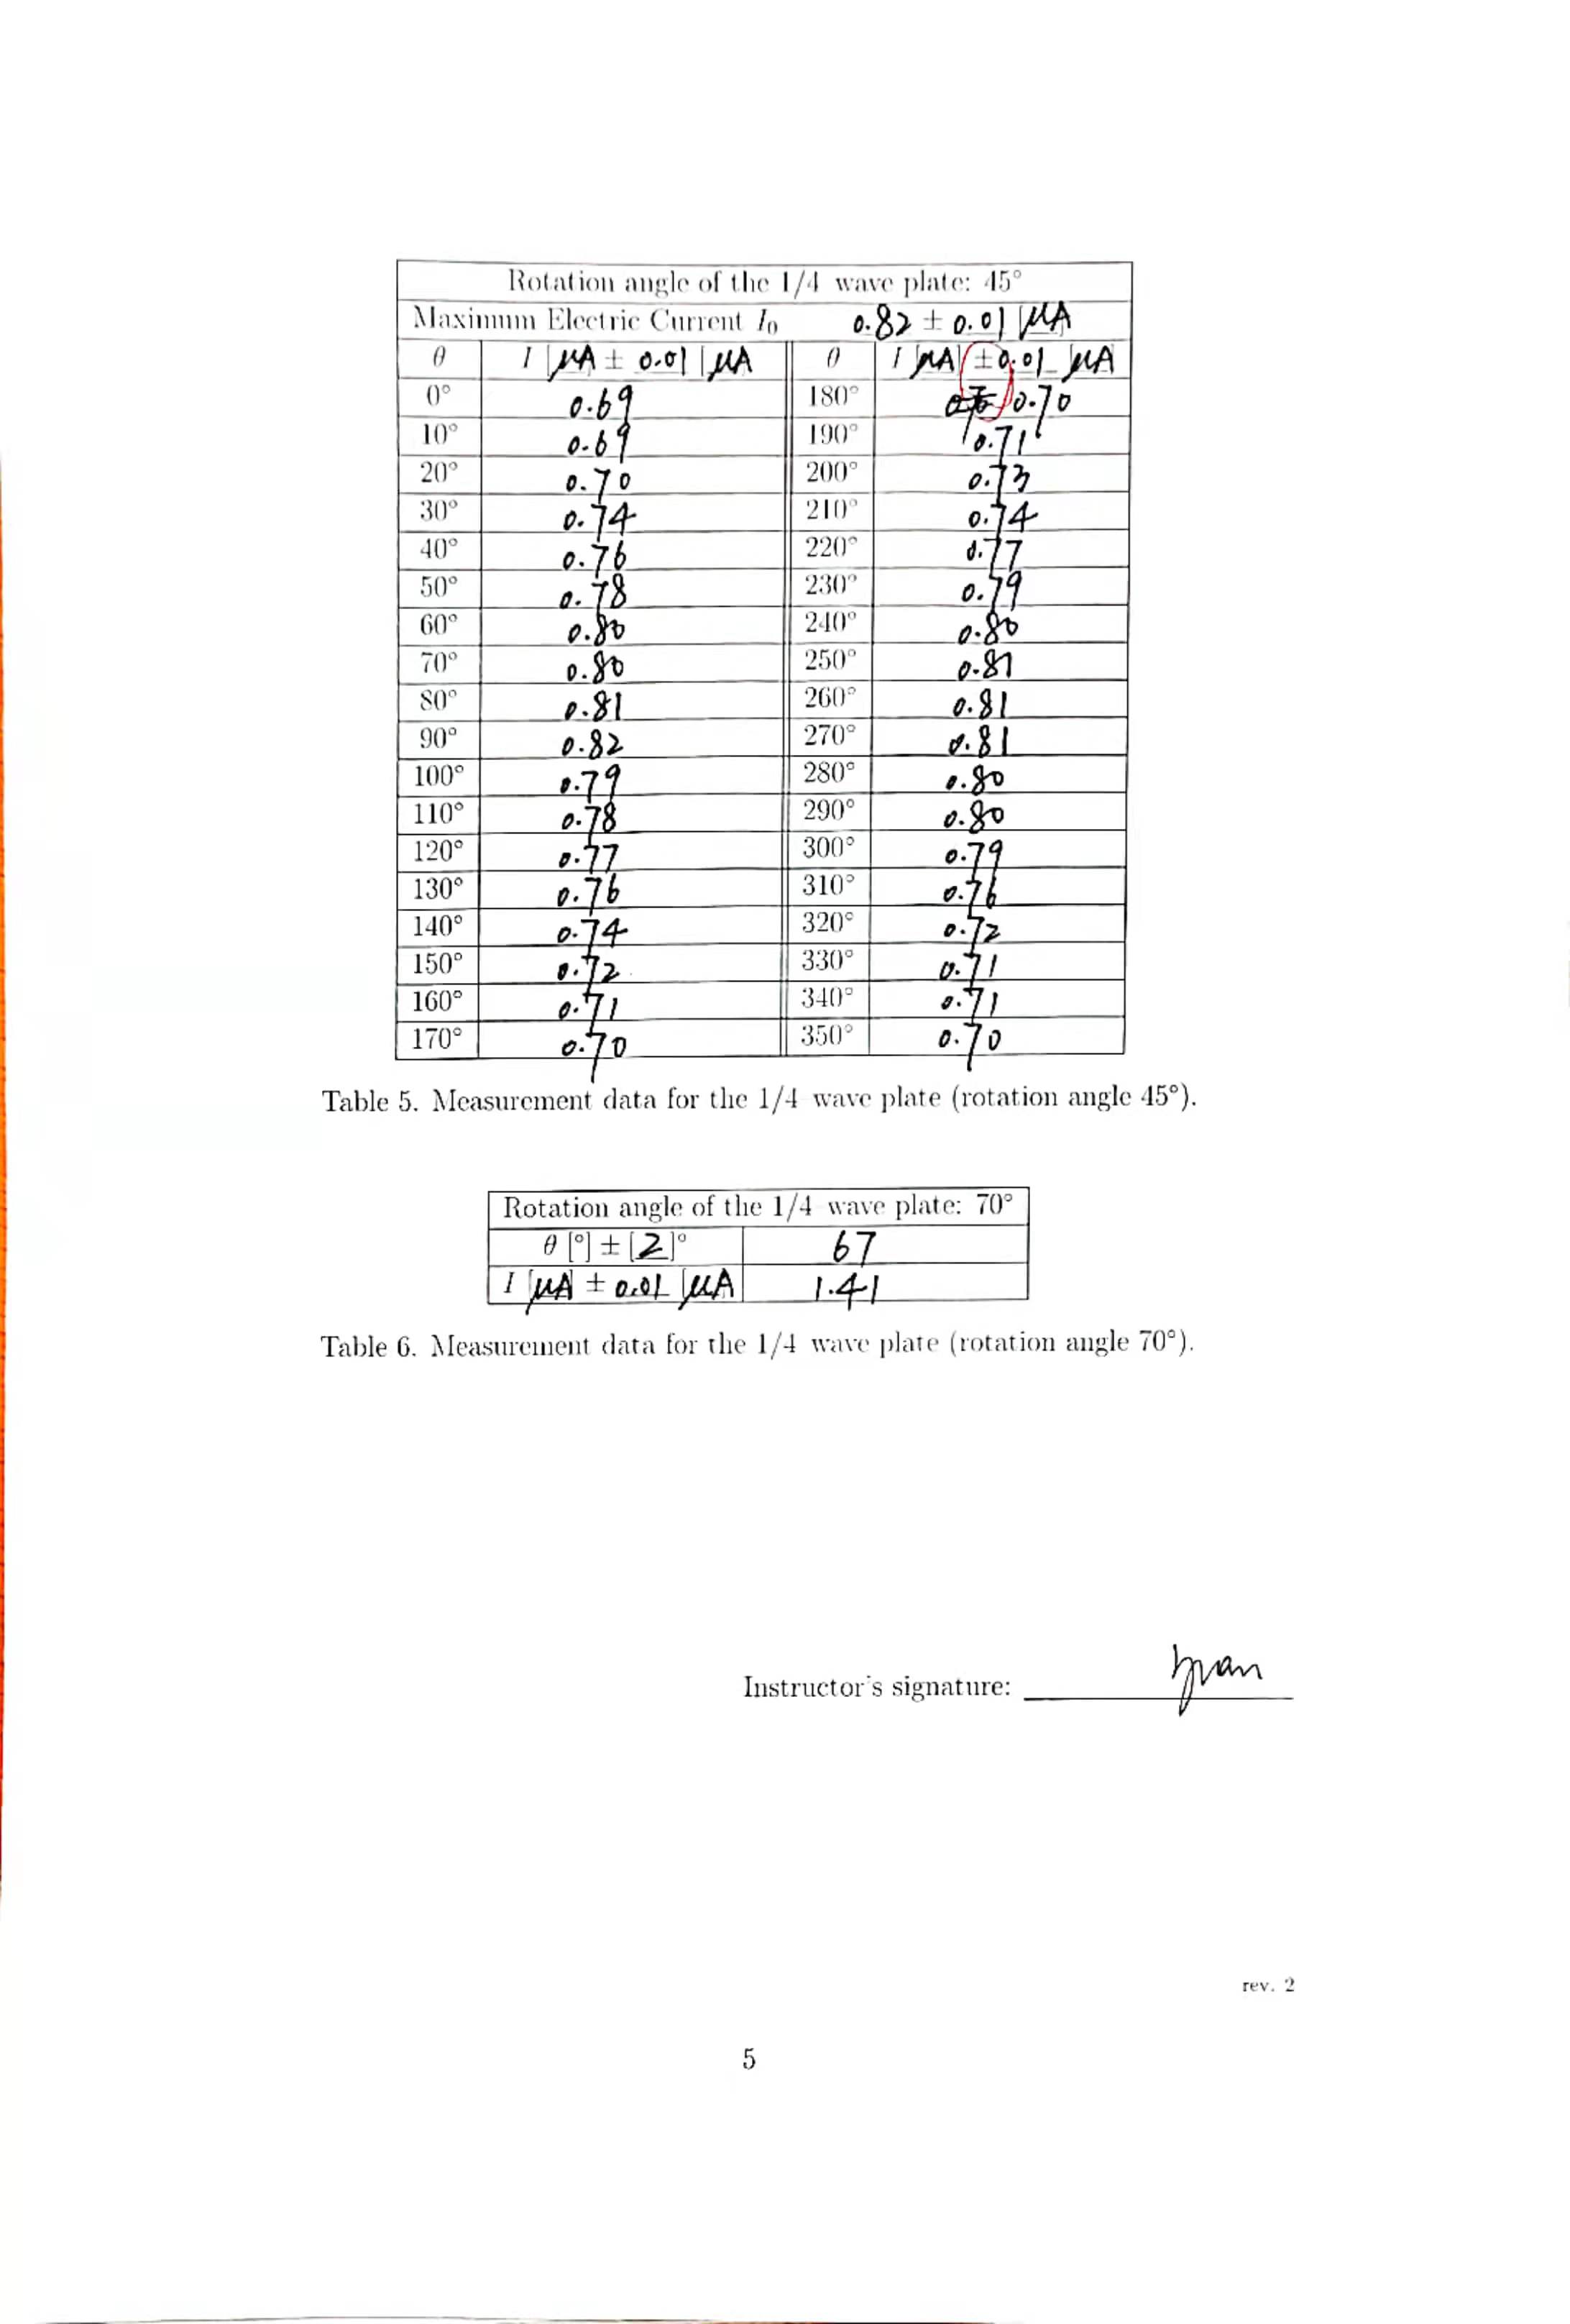 Rotation angle of the 1/4 wave plate: 45°
Maximum Electric Current I₀ 0.82 ± 0.01 [μA
θ I [μA ± 0.01 ] μA θ I [μA] ± 0.01 μA
0° 0.69 180° 0.70
10° 0.69 190° 0.71
20° 0.70 200° 0.73
30° 0.74 210° 0.74
40° 0.76 220° 0.77
50° 0.78 230° 0.79
60° 0.80 240° 0.80
70° 0.80 250° 0.81
80° 0.81 260° 0.81
90° 0.82 270° 0.81
100° 0.79 280° 0.80
110° 0.78 290° 0.80
120° 0.77 300° 0.79
130° 0.76 310° 0.76
140° 0.74 320° 0.72
150° 0.72 330° 0.71
160° 0.71 340° 0.71
170° 0.70 350° 0.70
Table 5. Measurement data for the 1/4 wave plate (rotation angle 45°).
Rotation angle of the 1/4 wave plate: 70°
θ [°] ± [2]° 67
I [μA] ± 0.01 [μA 1.41
Table 6. Measurement data for the 1/4 wave plate (rotation angle 70°).
Instructor's signature:
rev. 2
5